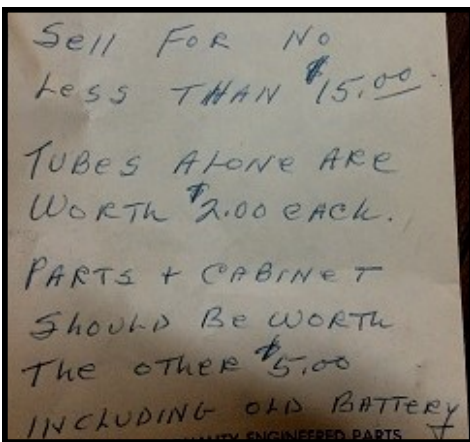 Sell FOR NO
Less THAN $15.00
TUBES ALONE ARE
WORTH $2.00 EACH.
PARTS + CABINET
SHOULD BE WORTH
THE OTHER $5.00
INCLUDING OLD BATTERY
ENGINEERED PARTS